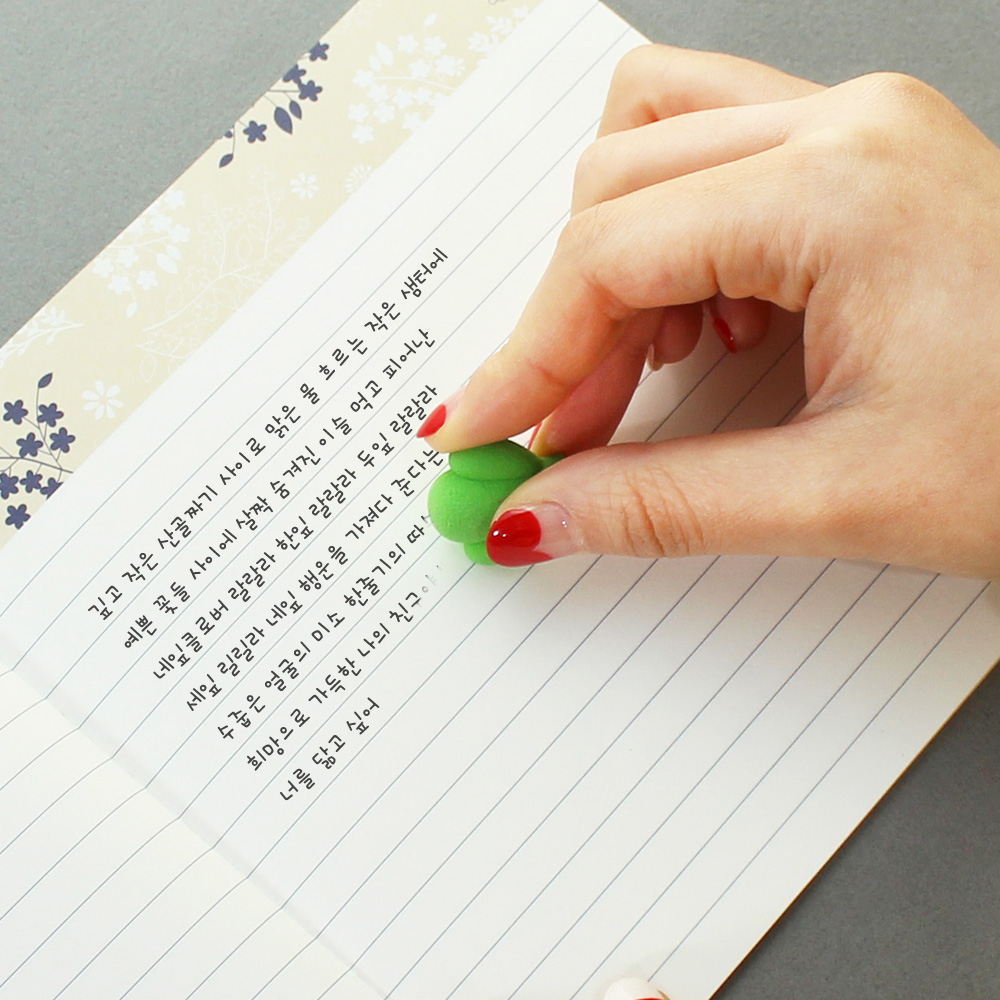 깊고 작은 산골짜기 사이로 맑은 물 흐르는 작은 샘터에
예쁜 꽃들 사이에 살짝 숨겨진 이슬 먹고 피어난
네잎클로버 랄랄라 한잎 랄랄라 두잎 랄랄라
세잎 릴릴라 네잎 행운을 가져다 준다는
수줍은 얼굴의 미소 한줄기의
희망으로 가득한 나의 친구
너를 닮고 싶어